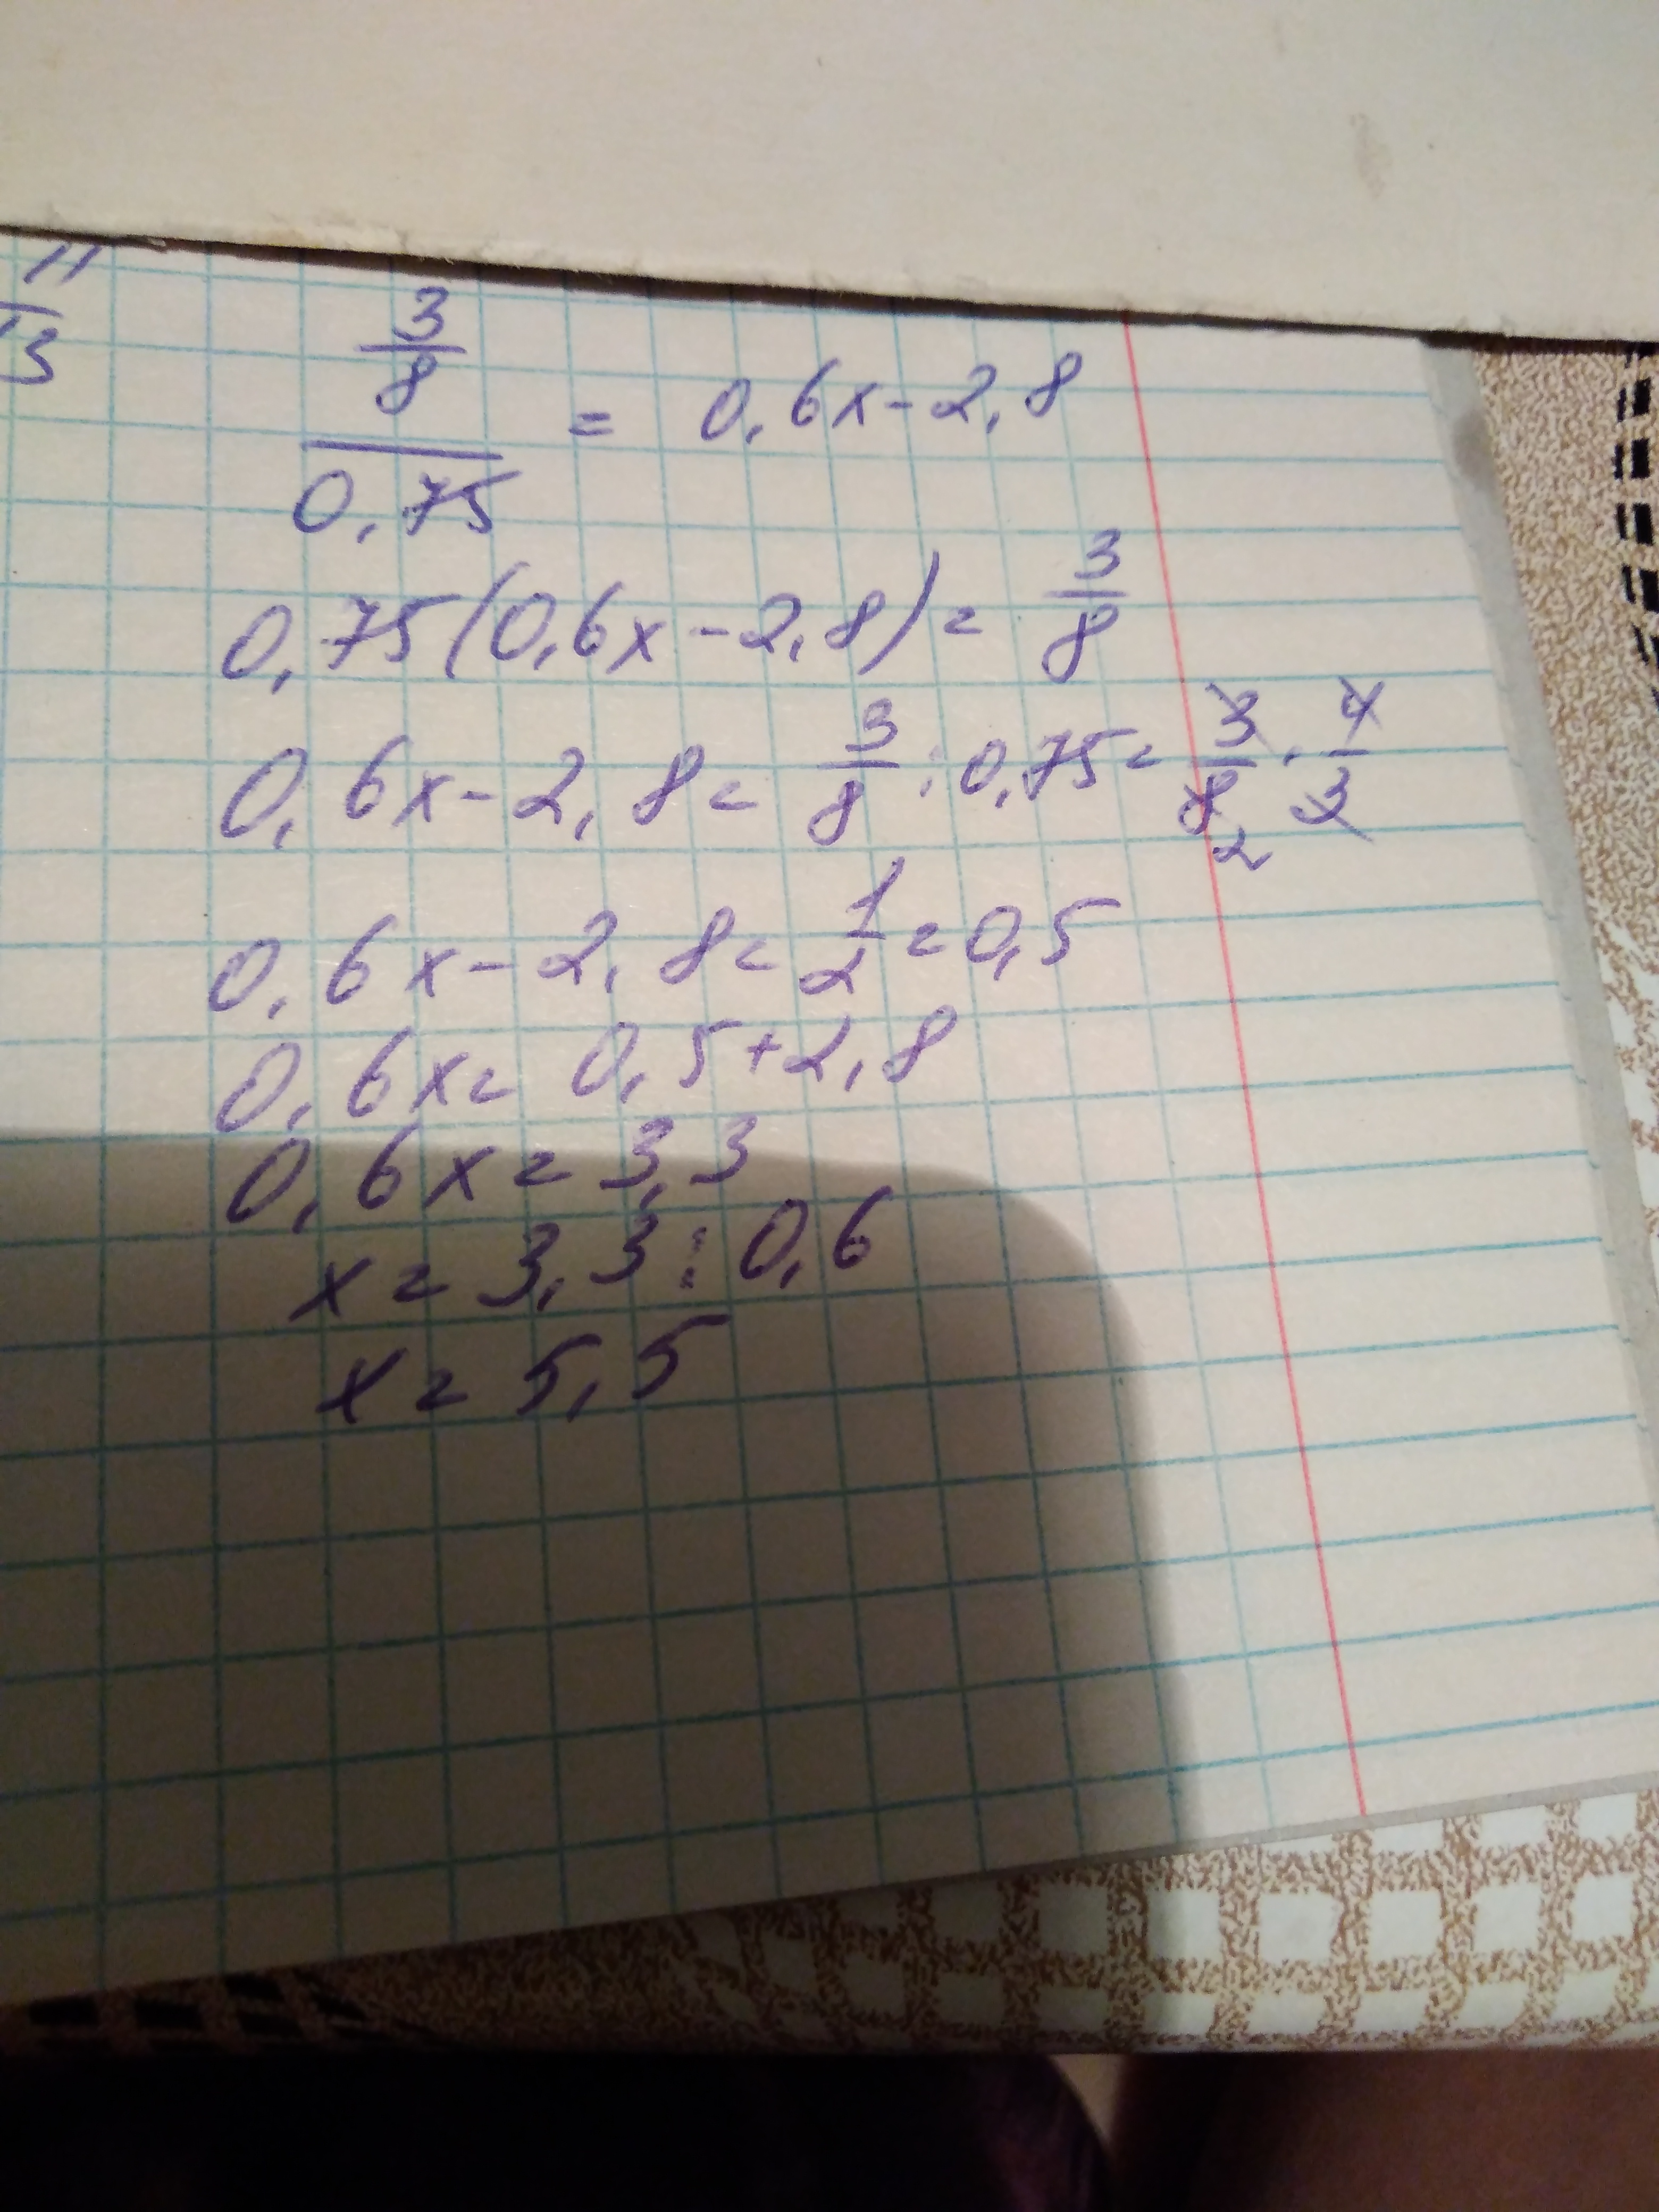 11/13
3/8 / 0,75 = 0,6x-2,8
0,75(0,6x-2,8)=3/8
0,6x-2,8=3/8:0,75=3/8·4/3 2
0,6x-2,8=1/2=0,5
0,6x=0,5+2,8
0,6x=3,3
x=3,3:0,6
x=5,5